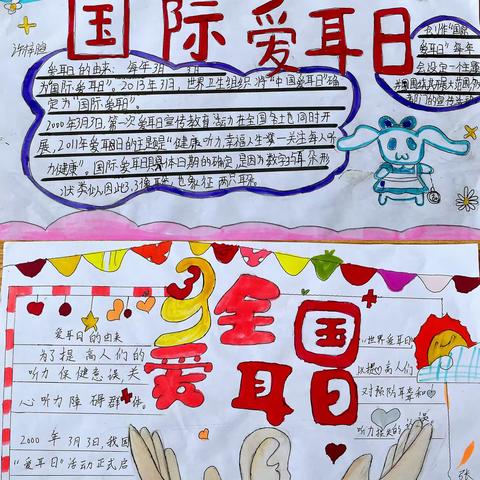 国际爱耳日
爱耳日的由来: 每年3月3日
为"国际爱耳日"。2013年3月3日,世界卫生组织将"中国爱耳日"确
定为"国际爱耳日"。
2000年3月3日,第一次爱耳日宣传教育活动在全国各地同时开
展,2011年爱耳日的主题是"健康听力,幸福人生——关注老年人听
力健康"。国际爱耳日具体日期的确定,是因为数字3与耳朵形
状类似,因此3.3像耳朵,也象征两只耳朵。
"国际
爱耳日"每年
会设定一个主题
并围绕其开展大范围的
全国
爱耳日
爱耳日的由来
为了提高人们的
听力保健意识,关
心听力障碍群体。
2000年3月3日,我国
"爱耳日"活动正式启
"世界爱耳日"
以提高人们
对预防耳聋和
听力损失的
张